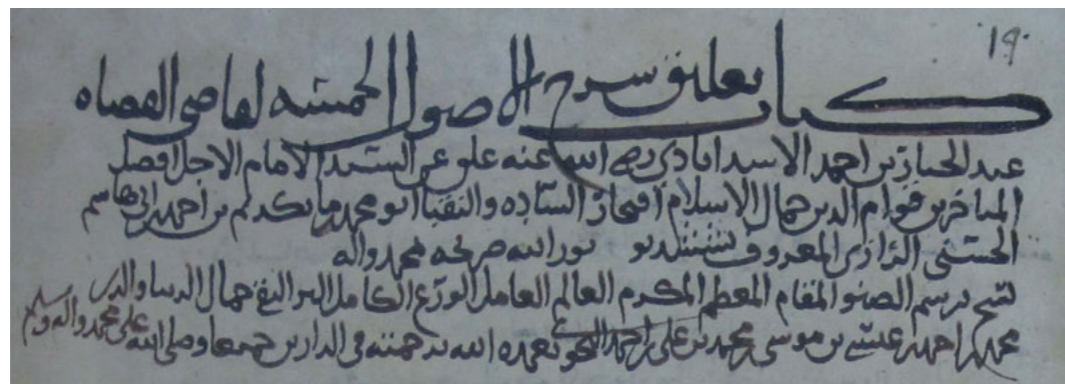 ١٩
كتاب تعليق شرح الاصول الخمسة لقاضي القضاه
عبد الجبار بن احمد الاسدابادي رضي الله عنه علق عن السيد الامام الاجل افضل
المتاخرين قوام الدين جمال الاسلام افتخار السادة والنقبا ابو محمد مانكديم بن احمد ابي هاشم
الحسني الرازي المعروف بششديو نور الله ضريحه بمحمد واله
نسخ برسم الصنو المقام المعظم المكرم العالم العامل الورع الكامل البر التقي جمال الدنيا والدين
محمد بن احمد بن عيسى بن موسى بن محمد بن علي بن احمد تغمده الله برحمته في الدارين جميعا وصلى الله على محمد واله وسلم